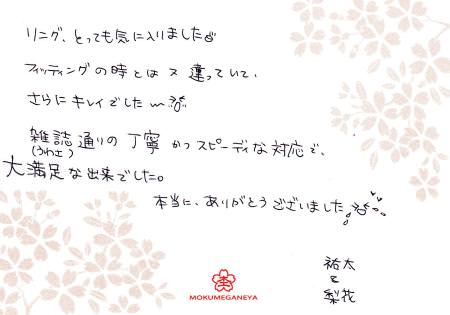 リング、とっても気に入りました
フィッティングの時とはヌ違っていて、
さらにキレイでした〜
雑誌通りの丁寧かつスピーディな対応で、
(うわさ)
大満足な出来でした。
本当に、ありがとうございました
祐太
&
梨花
MOKUMEGANEYA